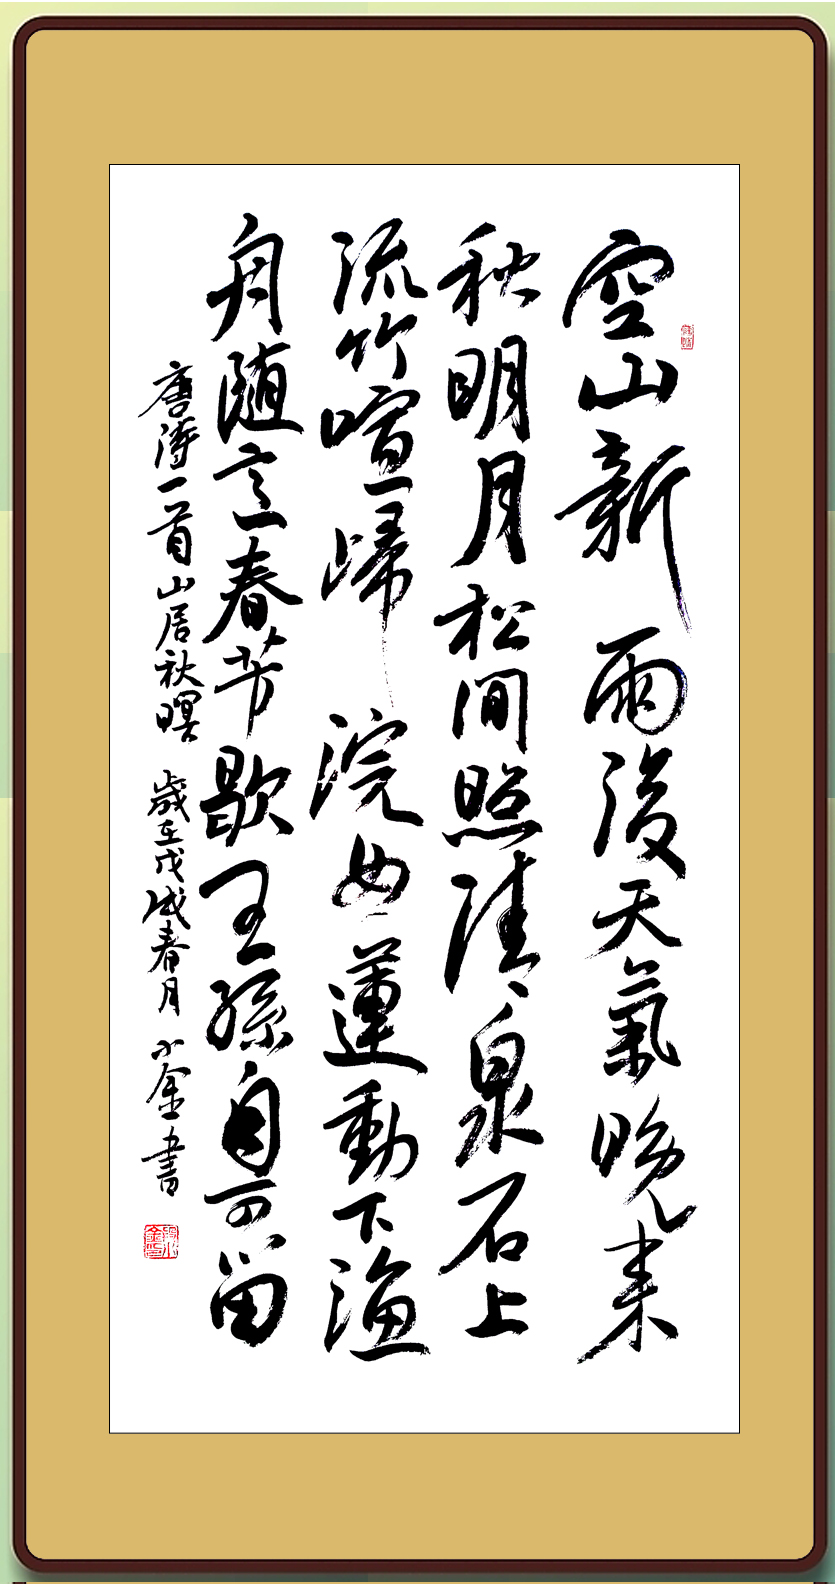 空山新雨後天氣晚来
秋明月松間照清泉石上
流竹喧歸浣女蓮動下漁
舟随意春芳歇王孫自可留
唐诗一首山居秋暝 歲在戊戌春月 小金書